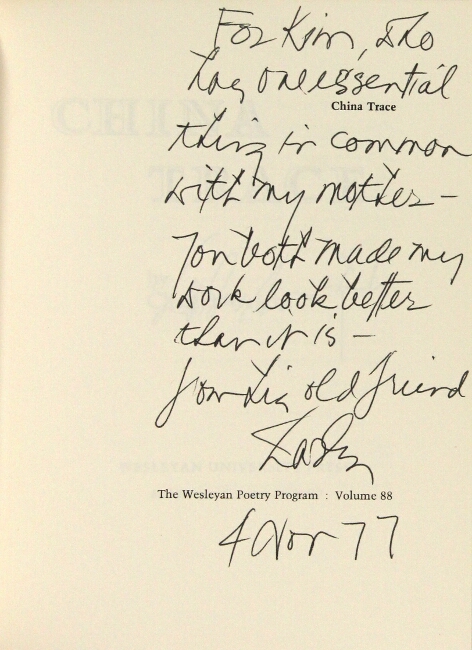 For Kim, who
has one essential
China Trace
thing in common
with my mother –
You both made my
work look better
than it is –
from his old friend
The Wesleyan Poetry Program : Volume 88
4 Nov 77